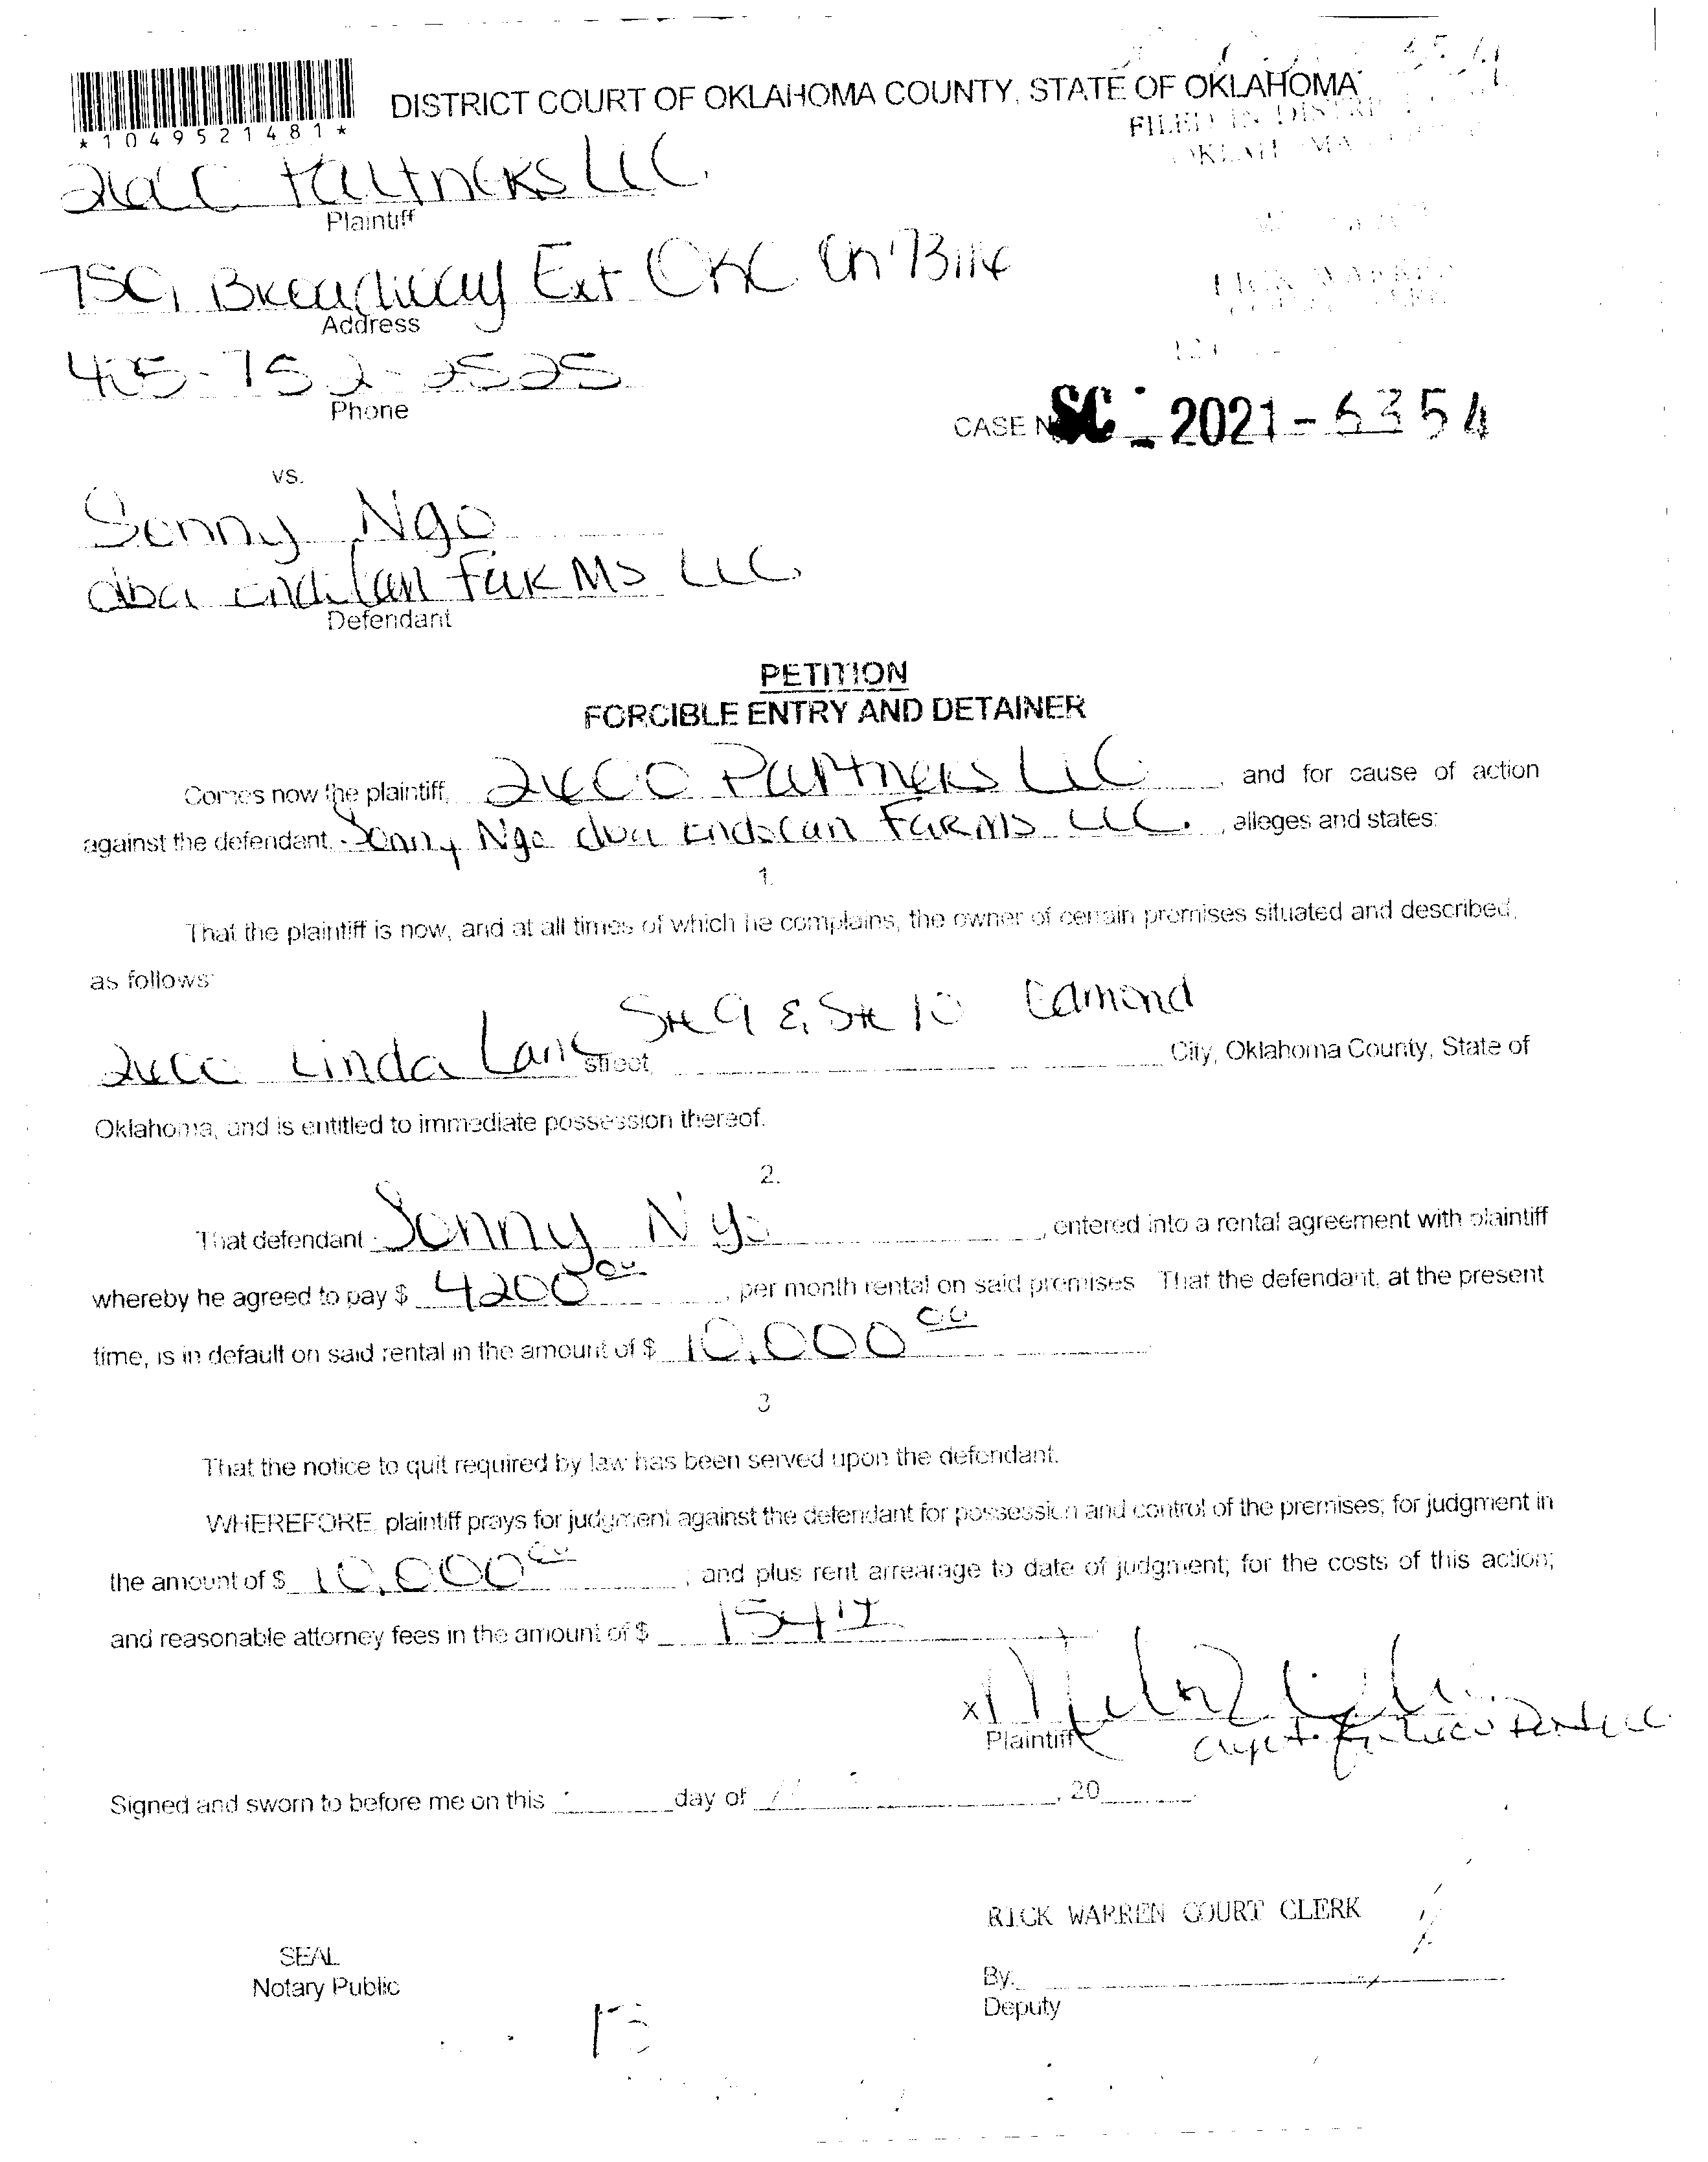 DISTRICT COURT OF OKLAHOMA COUNTY, STATE OF OKLAHOMA
*1049521481*
FILED IN DISTRI
Partners LLC
Plaintiff
Broadway Ext OKC 73116
Address
405-752-2525
Phone
RICK WARREN
CASE N SC - 2021-6354
vs.
Sonny Ngo
dba Farms LLC
Defendant
PETITION
FORCIBLE ENTRY AND DETAINER
Comes now the plaintiff, 2600 Partners LLC, and for cause of action
against the defendant, Sonny Ngo dba Farms LLC., alleges and states:
1.
That the plaintiff is now, and at all times of which he complains, the owner of certain premises situated and described,
as follows:
Ste 9 & Ste 10 Edmond
2600 Linda Lane street, City, Oklahoma County, State of
Oklahoma, and is entitled to immediate possession thereof.
2.
That defendant Sonny Ngo, entered into a rental agreement with plaintiff
whereby he agreed to pay $ 4200 00, per month rental on said premises That the defendant, at the present
time, is in default on said rental in the amount of $ 10,000 00
3
That the notice to quit required by law has been served upon the defendant.
WHEREFORE, plaintiff prays for judgment against the defendant for possession and control of the premises; for judgment in
the amount of $ 10,000 00; and plus rent arrearage to date of judgment; for the costs of this action;
and reasonable attorney fees in the amount of $ 154 14
x
Plaintiff
Signed and sworn to before me on this day of , 20
RICK WARREN COURT CLERK
SEAL
Notary Public
By:
Deputy